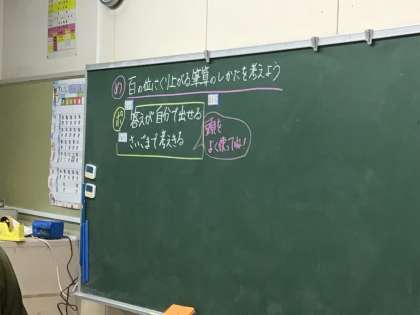 め 百の位にくり上がる筆算のしかたを考えよう
答えが自分で出せる
さいごまで考えきる
頭を
よく使ってね!